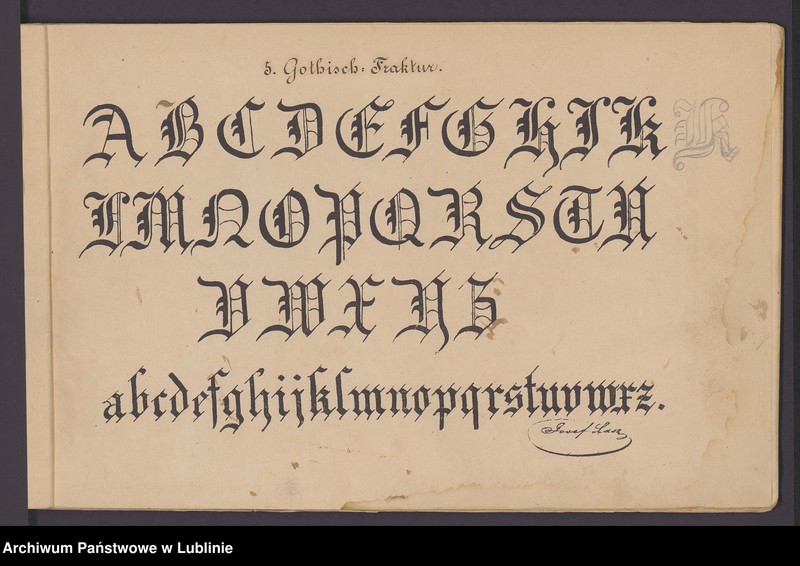 5. Gothisch: Fraktur.
A B C D E F G H I K K
L M N O P Q R S T U
V W X Y Z
abcdefghijklmnopqrstuvwxz.
Josef
Archiwum Państwowe w Lublinie